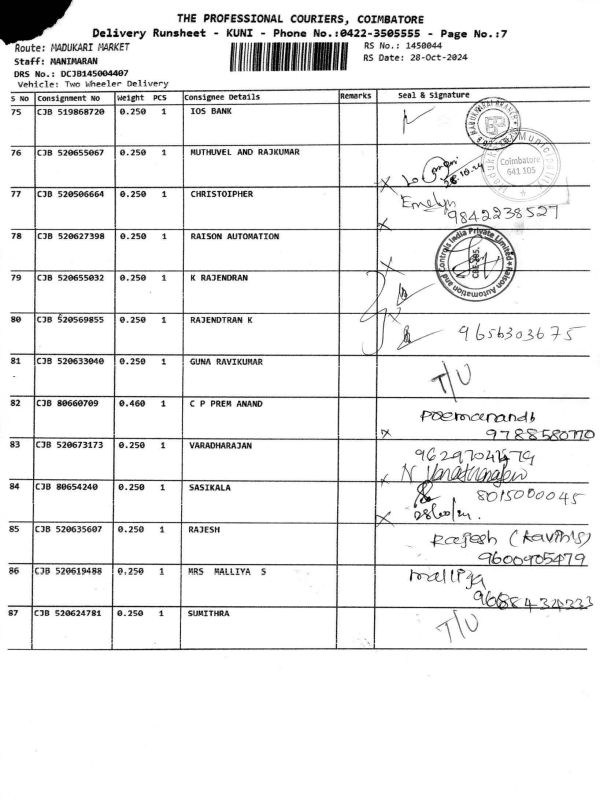 THE PROFESSIONAL COURIERS, COIMBATORE
Delivery Runsheet - KUNI - Phone No.:0422-3505555 - Page No.:7
Route: MADUKARI MARKET
RS No.: 1450044
Staff: MANIMARAN
RS Date: 28-Oct-2024
DRS No.: DCJB145004407
Vehicle: Two Wheeler Delivery
S No Consignment No Weight PCS Consignee Details Remarks Seal & Signature
75 CJB 519868720 0.250 1 IOS BANK
76 CJB 520655067 0.250 1 MUTHUVEL AND RAJKUMAR
28.10.24
Coimbatore
641 105
77 CJB 520506664 0.250 1 CHRISTOIPHER
Emelyn
9842238527
78 CJB 520627398 0.250 1 RAISON AUTOMATION
Raison Automation and Controls India Private Limited
79 CJB 520655032 0.250 1 K RAJENDRAN
80 CJB 520569855 0.250 1 RAJENDTRAN K
9656303675
81 CJB 520633040 0.250 1 GUNA RAVIKUMAR
T/U
82 CJB 80660709 0.460 1 C P PREM ANAND
9788580770
83 CJB 520673173 0.250 1 VARADHARAJAN
84 CJB 80654240 0.250 1 SASIKALA
8015000045
85 CJB 520635607 0.250 1 RAJESH
Rajesh
9600905479
86 CJB 520619488 0.250 1 MRS MALLIYA S
malliga
87 CJB 520624781 0.250 1 SUMITHRA
T/U